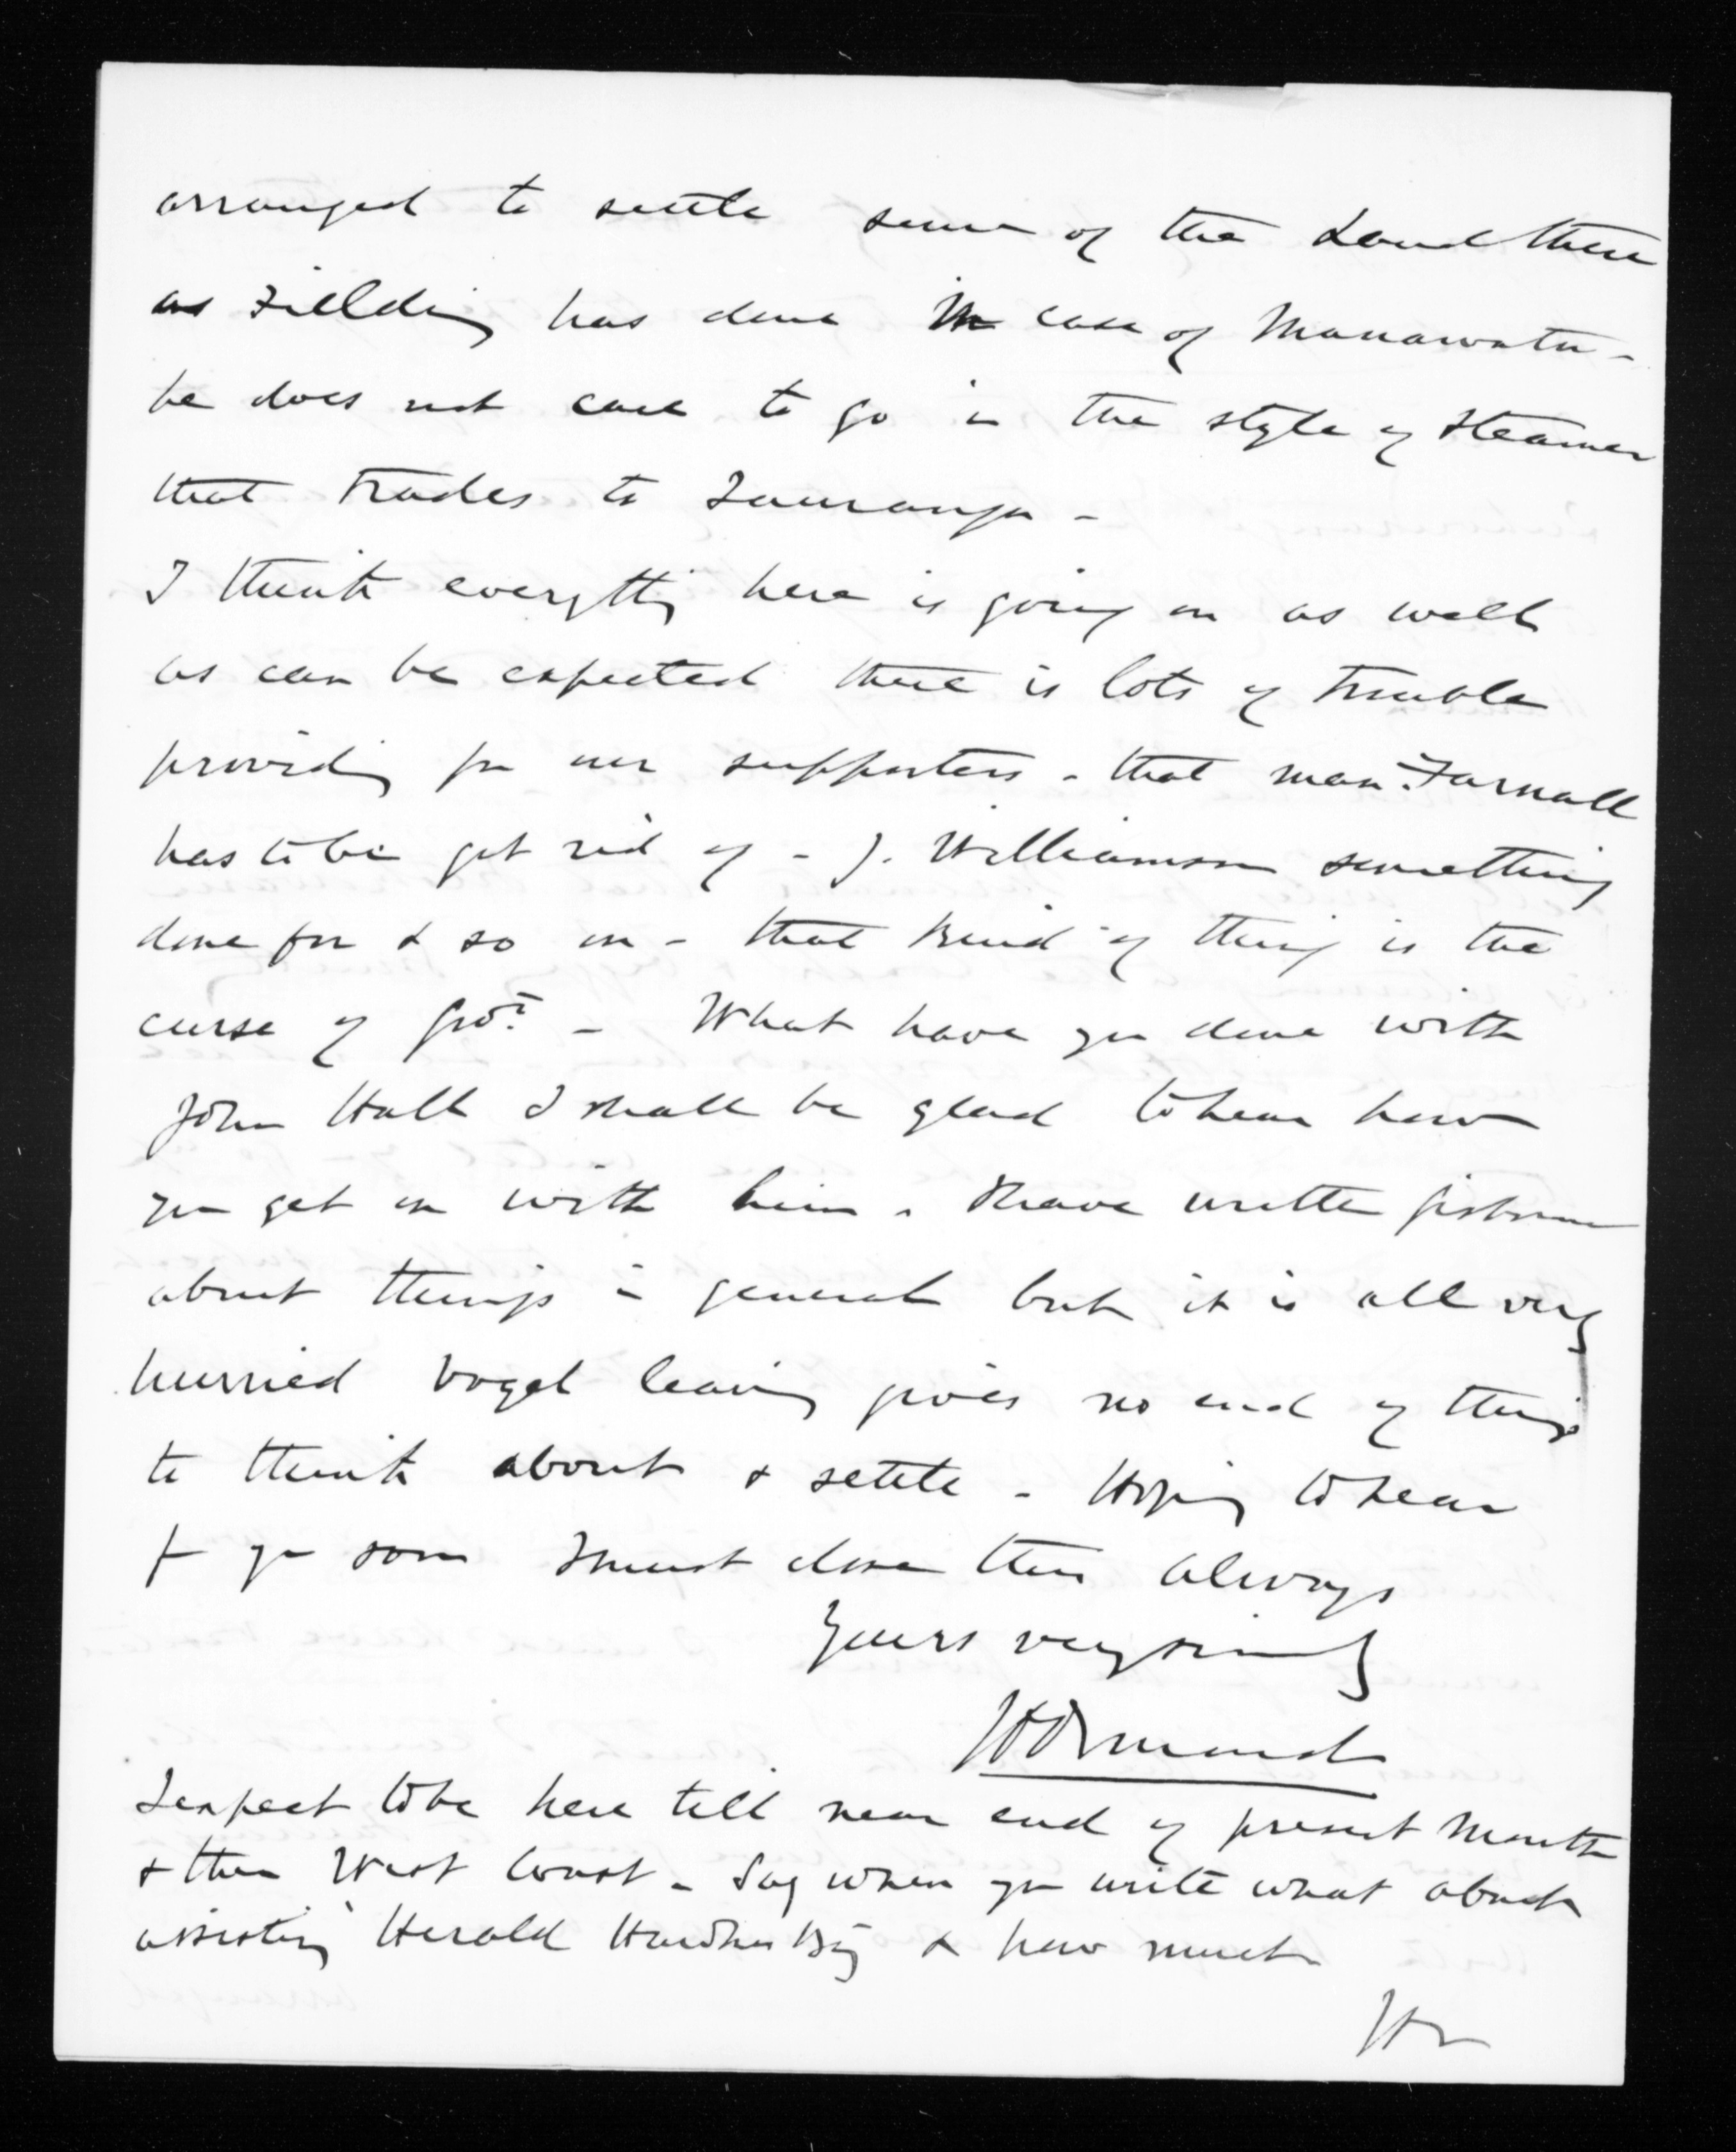 arranged to settle some of the Land there
as Fielding has done in case of Manawatu -
he does not care to go in the style of Steamer
that trades to Tauranga -
I think everything here is going on as well
as can be expected there is lots of trouble
providing for our supporters - that man Farnall
has to be got rid of - J. Williamson something
done for & so on - that kind of thing is the
curse of Govt. - What have you done with
John Hall I shall be glad to hear how
you get on with him - I have written Gisborne
about things in general but it is all very
hurried Vogel leaving gives no end of things
to think about & settle - Hoping to hear
fm you soon I must close this always
Yours very sincerely
JD Ormond
I expect to be here till near end of present Month
& then West Coast - Say when you write what about
assisting Herald Hawkes Bay & how much
JDO